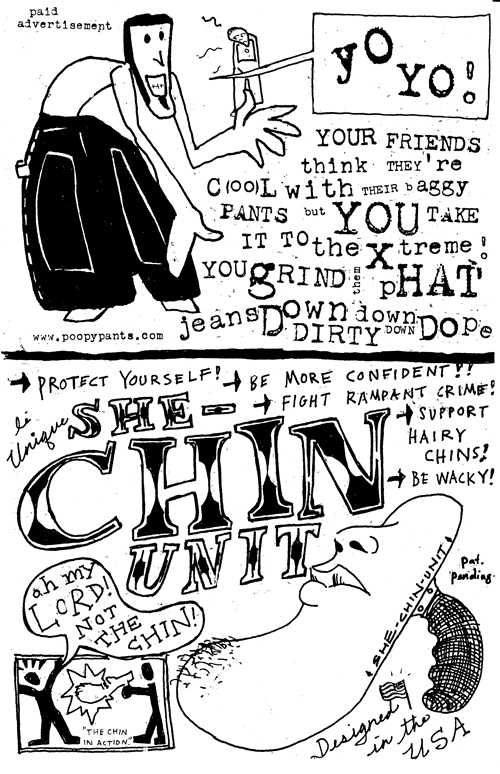 paid
advertisement
yo
YO!
YOUR FRIENDS
think THEY're
C(OO)L with THEIR baggy
PANTS but YOU TAKE
IT TO the Xtreme!
YOU gRIND them pHAT
jeans Down down
DIRTY DOWN DOpe
www.poopypants.com
→ PROTECT YOURSELF! → BE MORE CONFIDENT!!
→ FIGHT RAMPANT CRIME!
be
Unique
SHE-
CHIN
UNIT
→ SUPPORT
HAIRY
CHINS!
→ BE WACKY!
oh my
LORD!
NOT
THE
CHIN!
"THE CHIN
IN ACTION."
SHE-CHIN-UNIT
pat.
pending
Designed
in the
USA